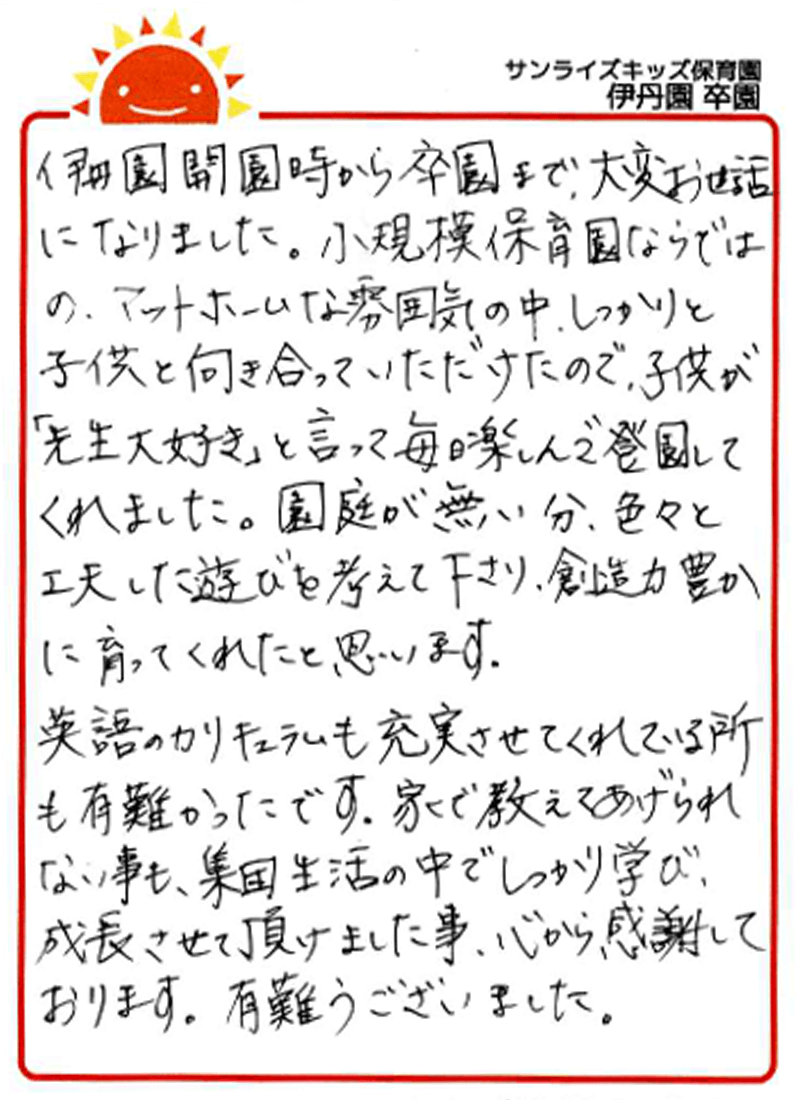 サンライズキッズ保育園
伊丹園 卒園
伊丹園開園時から卒園まで、大変お世話
になりました。小規模保育園ならでは
の、アットホームな雰囲気の中、しっかりと
子供と向き合っていただけたので、子供が
「先生大好き」と言って毎日楽しんで登園して
くれました。園庭が無い分、色々と
工夫した遊びを考えて下さり、創造力豊か
に育ってくれたと思います。
英語のカリキュラムも充実させてくれている所
も有難かったです。家で教えてあげられ
ない事も、集団生活の中でしっかり学び、
成長させて頂けました事、心から感謝して
おります。有難うございました。